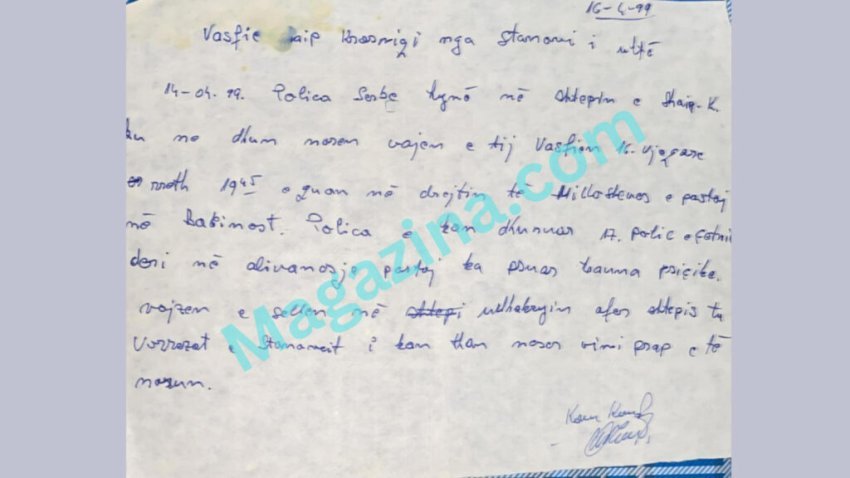 16-4-99
Vasfie aip Krasniqi nga Stanovci i ultë
14-04.99. Polica Serbe hynë në shtepin e Shaip. K.
ku me dhun moren vajen e tij Vasfien 16-vjeqare
rreth 1945 e quan në drejtim të Milloshevos e pastaj
në Babimost. Polica e kan dhunuar 17. polic e
deri në alivanosje pastaj ka psuar trauma psiqike.
vajzen e sellen në shtepi udhekryqin afer shtepis tu
Vorrezat e Stanovcit i kan than moser vimi prap e të
marrum.
Magazina.com